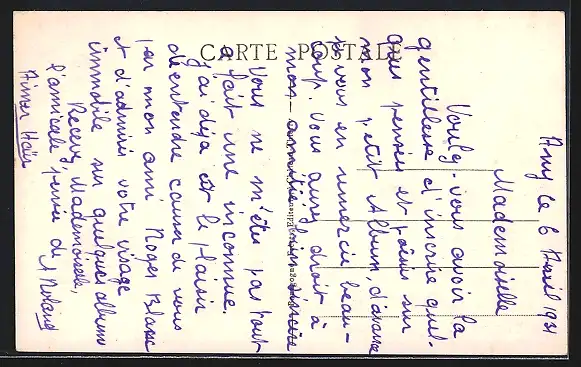 CARTE POSTALE
Any le 6 Avril 1931
Mademoiselle
Voulez-vous avoir la
gentillesse d'inscrire quel-
ques pensées et poésies sur
mon petit Album d'avance
je vous en remercie beau-
coup. Vous aurez droit à
mon amitié bien sincère
Vous ne m'êtes pas tout
à fait une inconnue.
J'ai déjà eût le plaisir
d'entendre causer de vous
par mon ami Roger Blasse
et d'admirer votre visage
immobile sur quelques albums
Recevez, Mademoiselle,
l'amicale pensée de A Roland